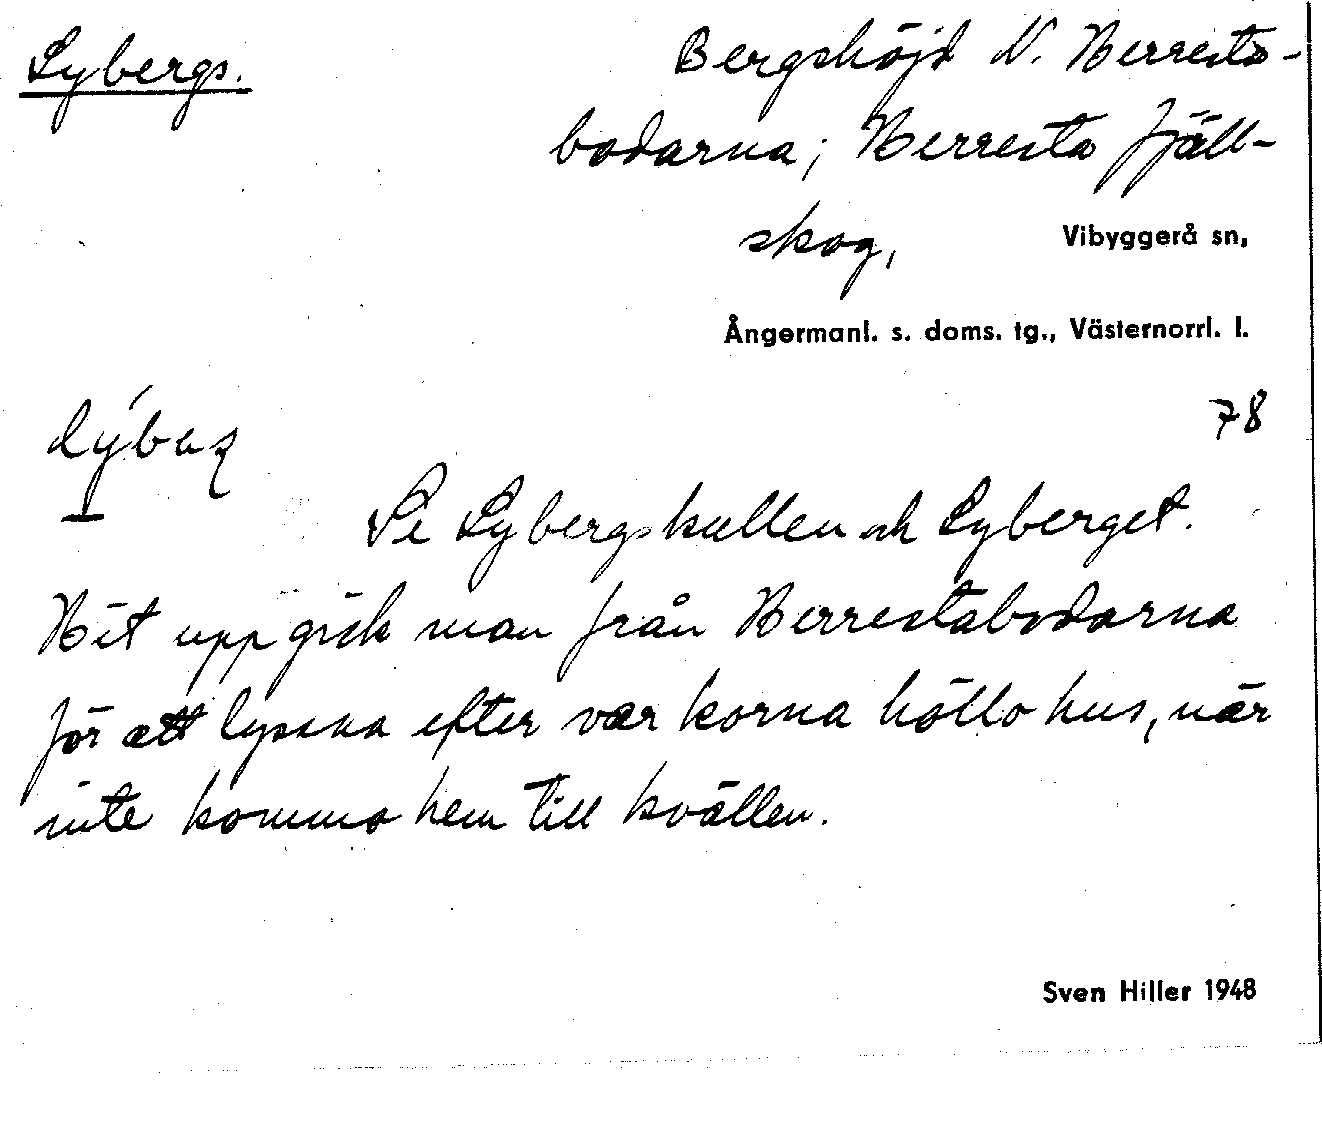 Lybergs.
Bergshöjd N. Herresta-
bodarna; Herresta fjäll-
skog, Vibyggerå sn,
Ångermanl. s. doms. tg., Västernorrl. l.
78
Se Lybergskullen och Lyberget.
Hit upp gick man från Herrestabodarna
för att lyssna efter var korna höllo hus, när
inte kommo hem till kvällen.
Sven Hiller 1948